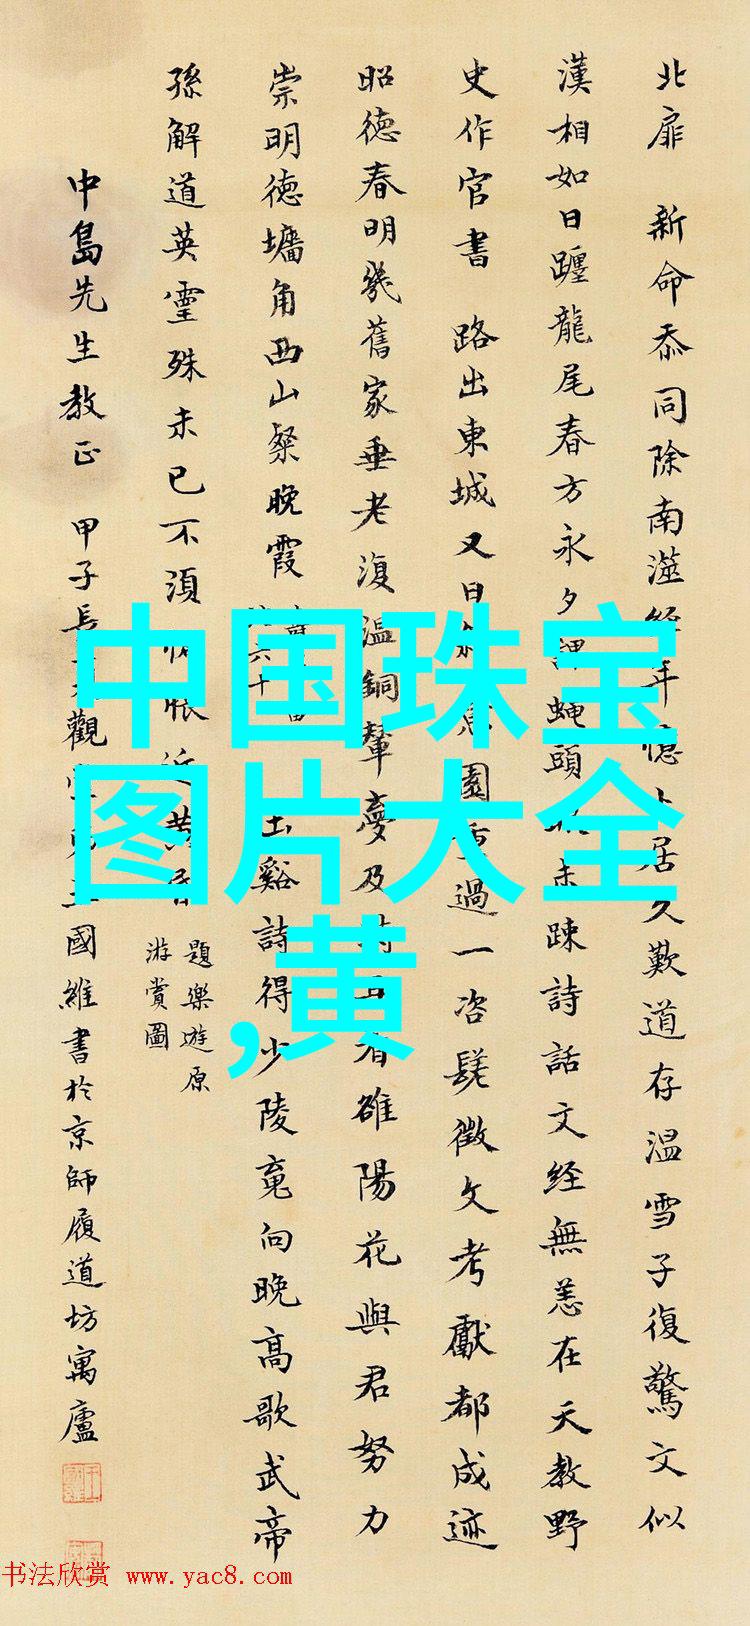 北扉 新命忝同除南遊經年憶卜居久歎道存温雪子復驚文似
漢相如日躔龍尾春方永夕譚蠅頭 未疎詩話文経無恙在天教野
史作官書 路出東城又日 園重過一咨嗟徵文考獻都成迹
昭德春明幾舊家垂老復温銅輦夢及 看雒陽花與君努力
崇明德墉角西山粲晚霞 六十
玉谿詩得少陵竟向晚高歌武帝
孫解道英靈殊未已不須惆悵近黄昏
題樂遊原
游賞圖
中島先生教正 甲子長 觀堂 王國維書於京師履道坊寓廬
中国珠宝
图片大全
,黄
书法欣赏 www.yac8.com